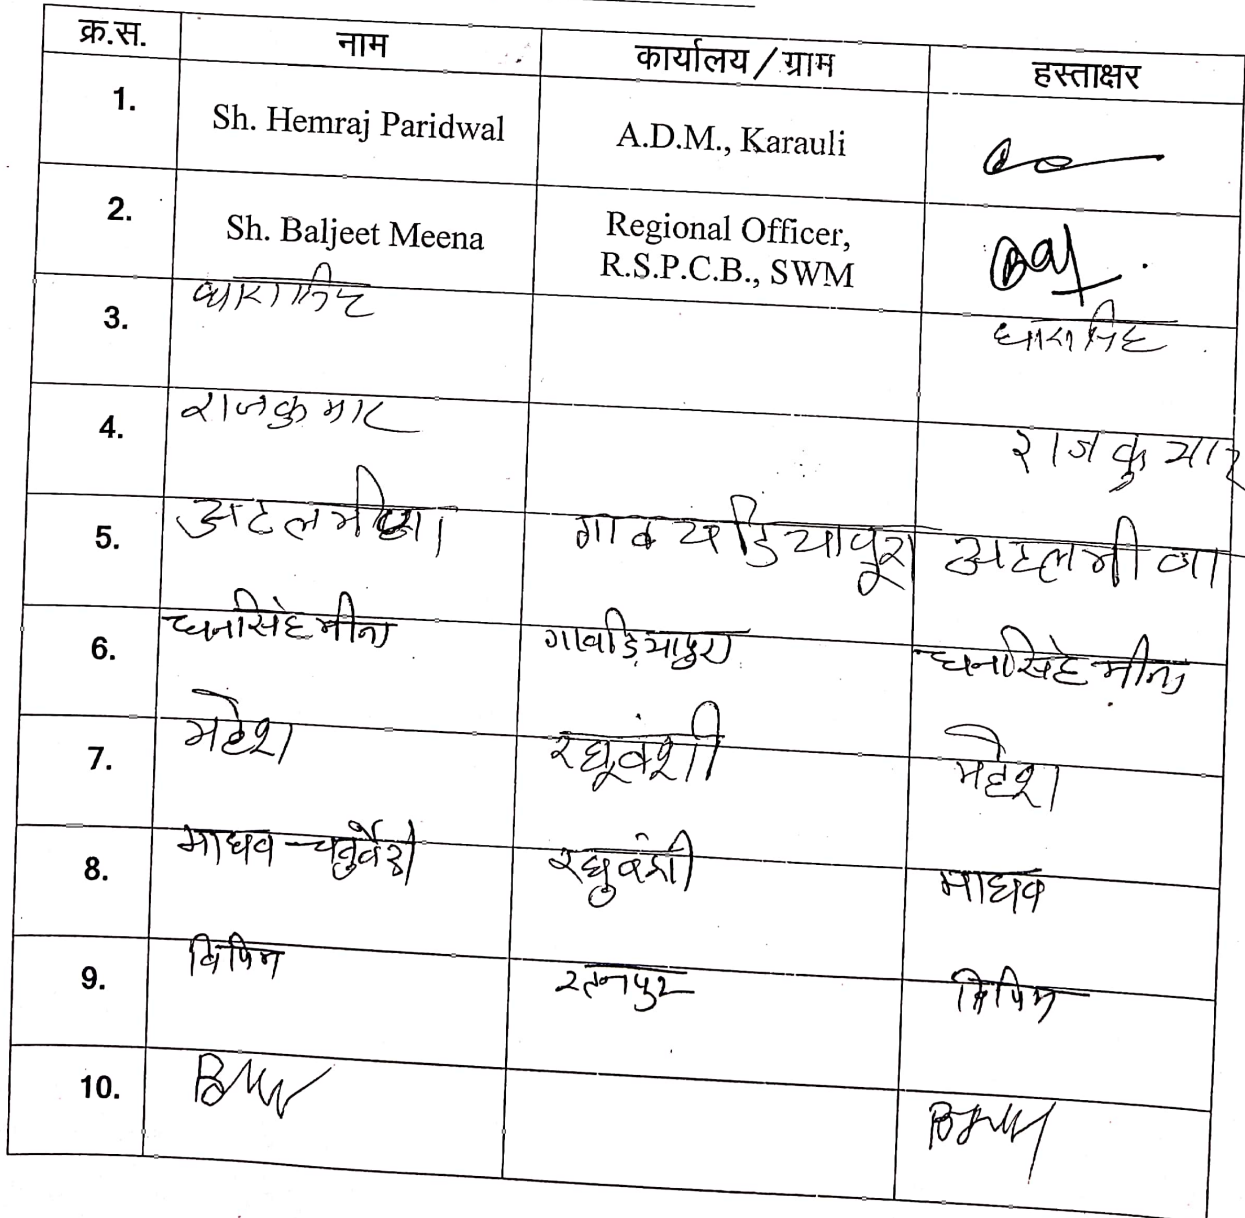 क्र.स. नाम कार्यालय / ग्राम हस्ताक्षर
1. Sh. Hemraj Paridwal A.D.M., Karauli
2. Sh. Baljeet Meena Regional Officer,
R.S.P.C.B., SWM
3. धारासिह
4. राजकुमार राजकुमार
5. अटलमीणा अटलमीणा
6. धनसिंह मीना धनसिंह मीना
7. महेश रघुवंशी महेश
8. माधव चतुर्वेदी रघुवंशी माधव
9. विपिन रतनपुर विपिन
10.